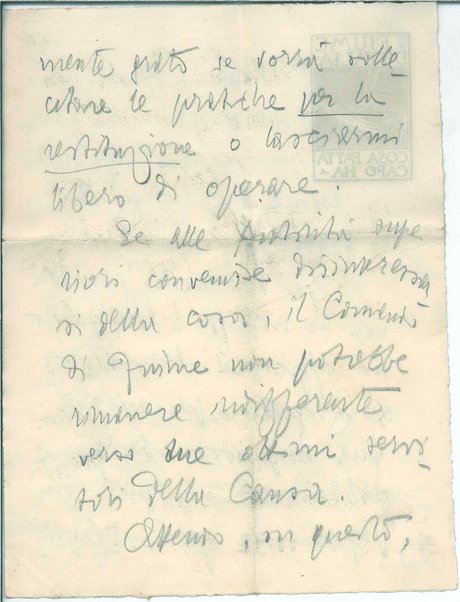 mente grato se vorrà solle-
citare le pratiche per la
restituzione o lasciarmi
libero di operare.
Se alle Autorità supe
riori convenisse disinteressar
si della cosa, il Comando
di Fiume non potrebbe
rimanere indifferente
verso tre ottimi servi-
tori della Causa.
Attendo, su questo,
FIUME
D'ITALIA
COSA FATTA
CAPO HA